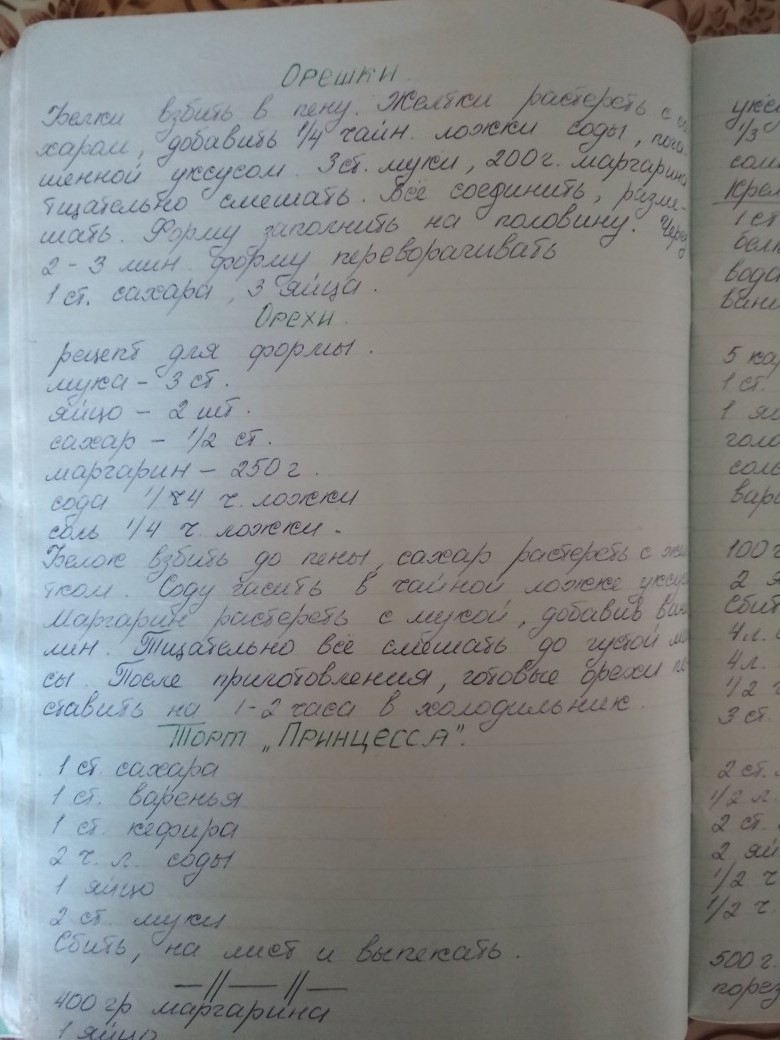 Орешки.
Белки взбить в пену. Желтки растереть с са
харом, добавить 1/4 чайн. ложки соды, пога
шенной уксусом. 3 ст. муки, 200 г. маргарина
тщательно смешать. Все соединить, разме-
шать. Форму заполнить на половину. Через
2-3 мин. форму переворачивать
1 ст. сахара, 3 яйца.
Орехи
рецепт для формы.
мука - 3 ст.
яйцо - 2 шт.
сахар - 1/2 ст.
маргарин - 250 г.
сода 1/4 ч. ложки
соль 1/4 ч. ложки.
Белок взбить до пены, сахар растереть с жел
тком. Соду гасить в чайной ложке уксуса
Маргарин растереть с мукой, добавив вани
мин. Тщательно все смешать до густой мас
сы. После приготовления, готовые орехи по
ставить на 1-2 часа в холодильник.
Торт „Принцесса".
1 ст. сахара
1 ст. варенья
1 ст. кефира
2 ч. л. соды
1 яйцо
2 ст. муки
Сбить, на лист и выпекать.
—//—//—
400 гр маргарина
1 яйцо
уксу
1/3
соли
Крем
1 ст
белк
вода
вани
5 ка
1 ст.
1 яй
голо
соль
вари
100 г
2 я
Сбит
4 л.
4 л.
1/2 ч
3 ст.
2 ст.
1/2 л.
2 ст.
2 яй
1/2 ч
1/2 ч.
500 г.
порез